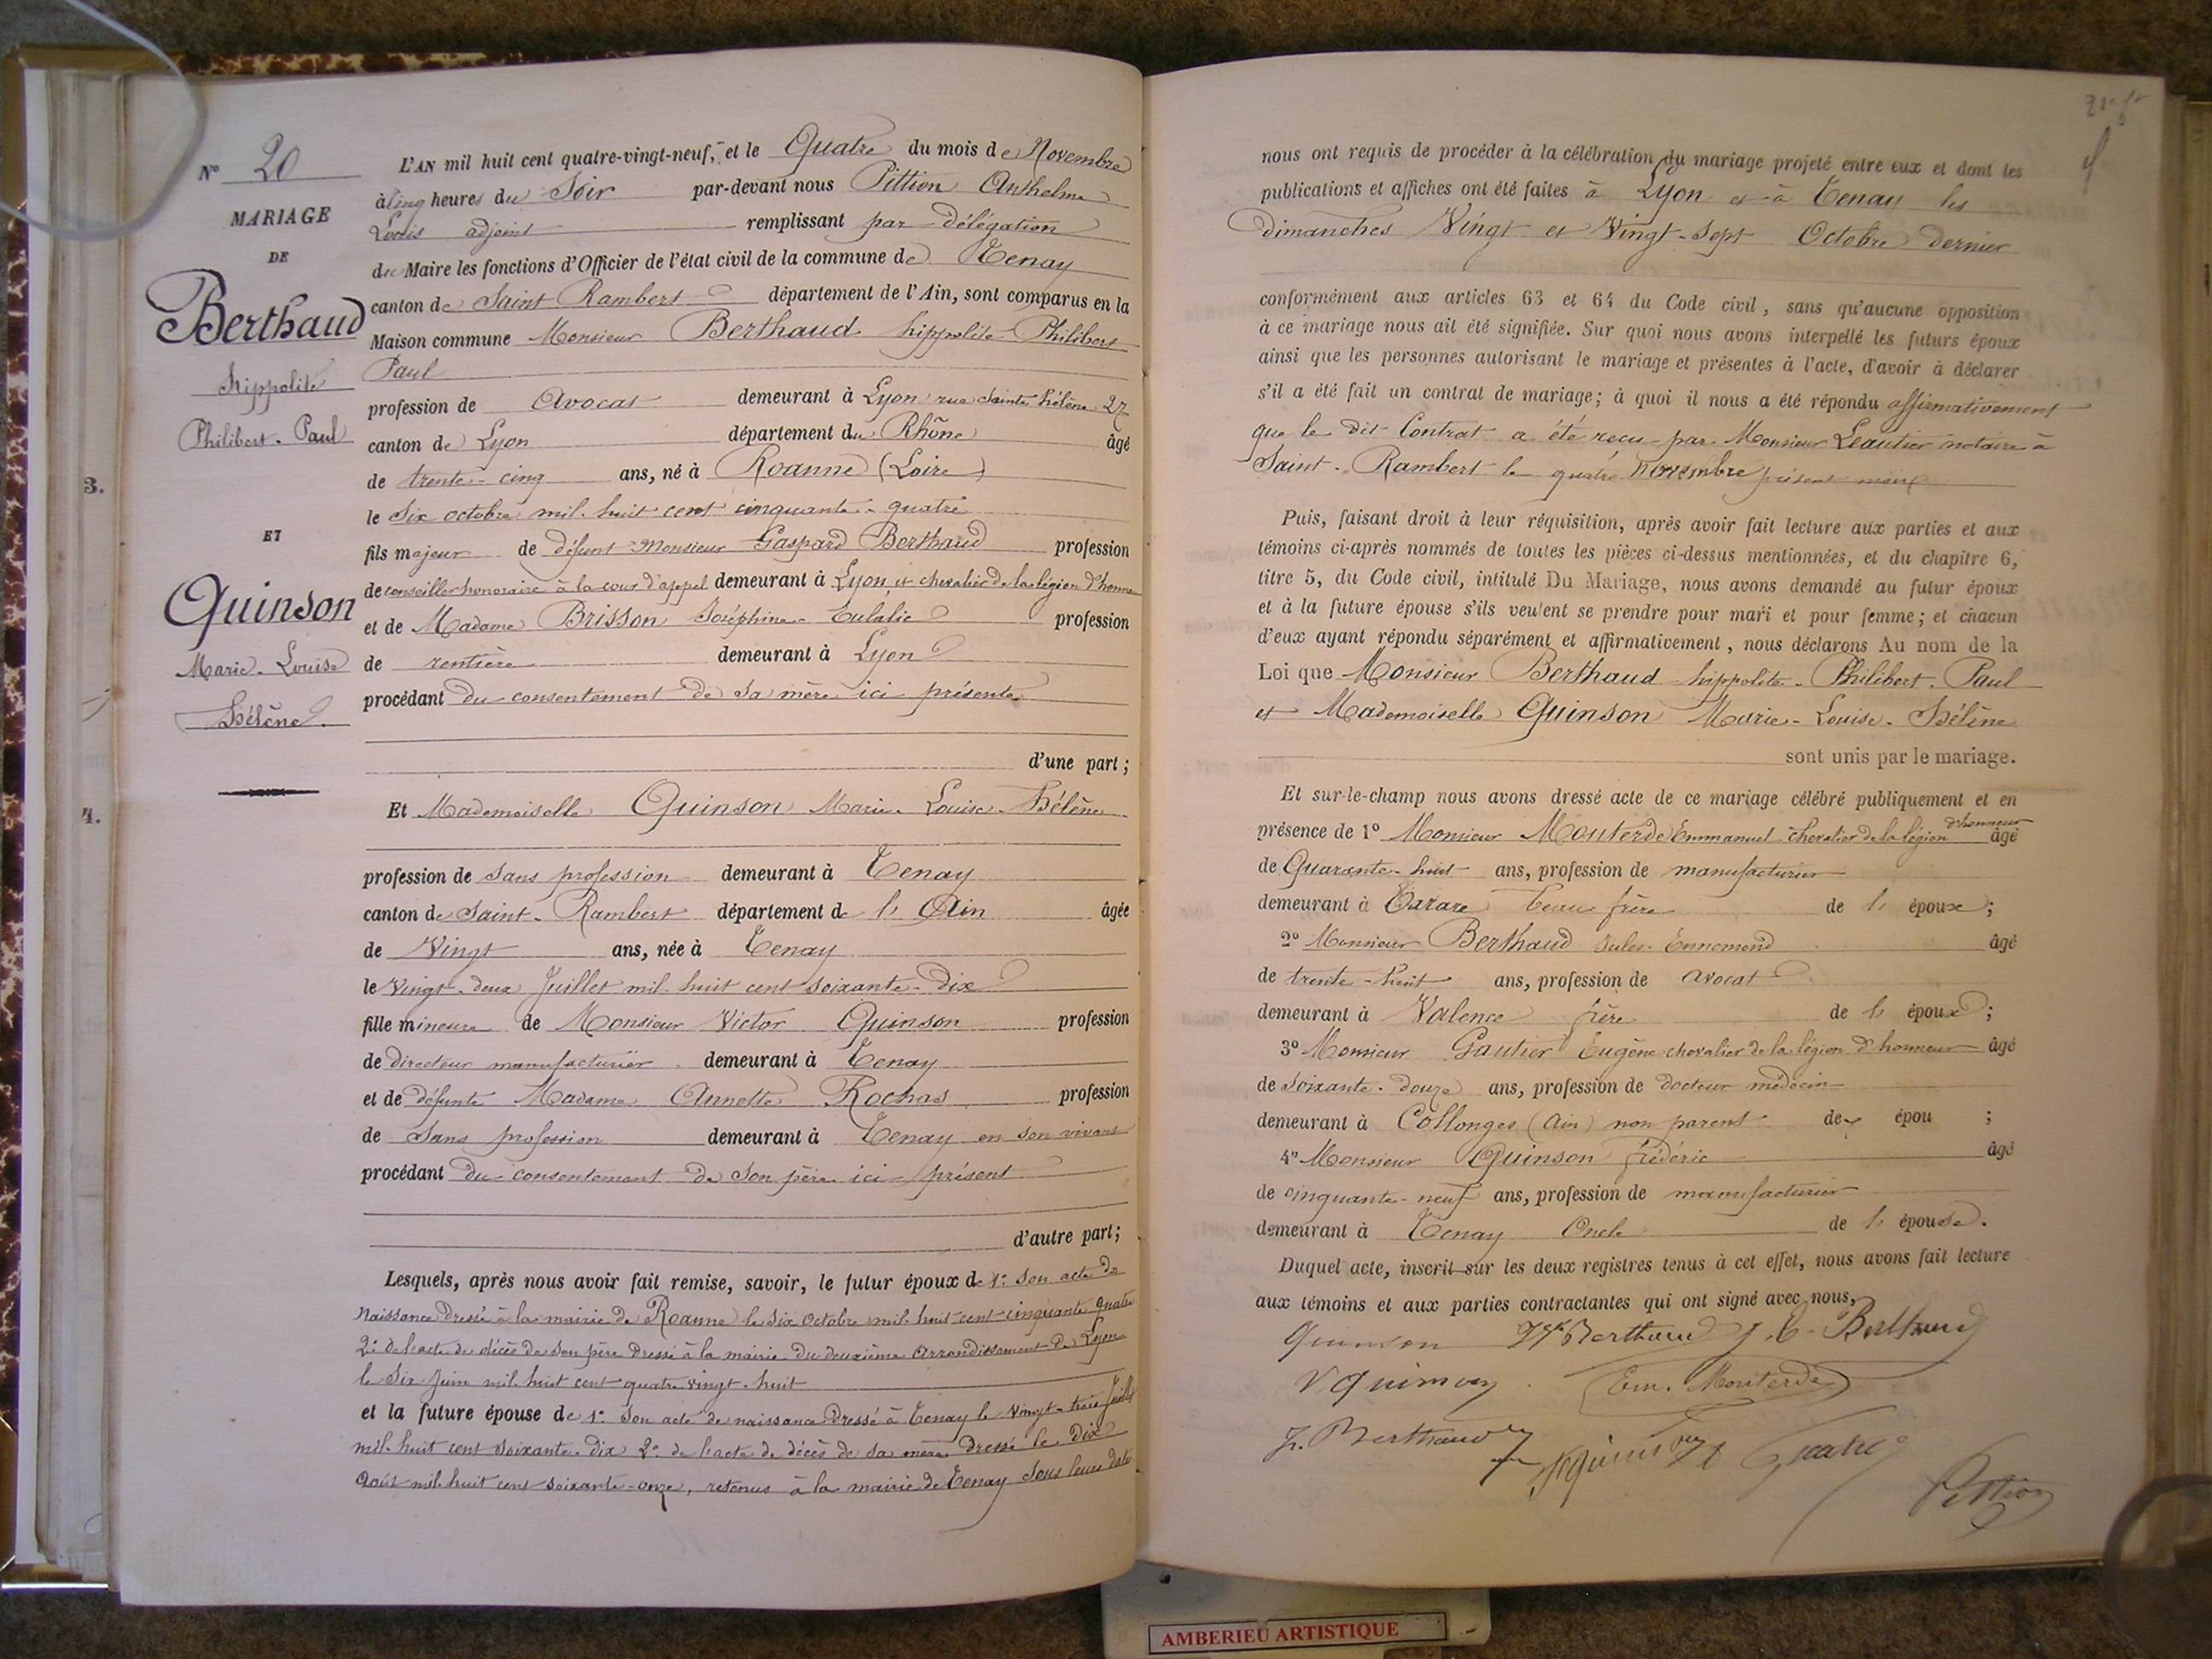 N° 20
MARIAGE
DE
Berthaud
Hippolite
Philibert-Paul
ET
Quinson
Marie-Louise
Hélène
3.
4.
L'AN mil huit cent quatre-vingt-neuf, et le Quatre du mois de Novembre
à Cinq heures du Soir par-devant nous Pittion Anthelme
Louis adjoint remplissant par délégation
du Maire les fonctions d'Officier de l'état civil de la commune de Tenay
canton de Saint Rambert département de l'Ain, sont comparus en la
Maison commune Monsieur Berthaud hippolite-Philibert
Paul
profession de Avocat demeurant à Lyon rue Sainte hélène 27
canton de Lyon département du Rhône âgé
de trente-cinq ans, né à Roanne (Loire)
le Six octobre mil-huit cent cinquante-quatre
fils majeur de défunt Monsieur Gaspard Berthaud profession
de conseiller honoraire à la cour d'appel demeurant à Lyon, et chevalier de la légion d'honneur
et de Madame Brisson Joséphine-Eulalie profession
de rentière demeurant à Lyon
procédant du consentement de sa mère ici présente
d'une part ;
Et Mademoiselle Quinson Marie-Louise-Hélène
profession de sans profession demeurant à Tenay
canton de Saint-Rambert département de l'Ain âgée
de Vingt ans, née à Tenay
le Vingt-deux Juillet mil-huit cent soixante-dix
fille mineure de Monsieur Victor Quinson profession
de directeur manufacturier demeurant à Tenay
et de défunte Madame Annette Rochas profession
de Sans profession demeurant à Tenay en son vivant
procédant du consentement de son père ici présent
d'autre part ;
Lesquels, après nous avoir fait remise, savoir, le futur époux de 1° Son acte de
Naissance dressé à la mairie de Roanne le Six Octobre mil-huit-cent-cinquante-quatre
2° de l'acte de décès de son père dressé à la mairie du deuxième Arrondissement de Lyon
le Six Juin mil-huit cent quatre vingt-huit
et la future épouse de 1° Son acte de naissance dressé à Tenay le Vingt-trois Juillet
mil-huit cent soixante-dix 2° de l'acte de décès de sa mère dressé le Dix
Août mil-huit cent soixante-onze, retenus à la mairie de Tenay sous leurs dates
nous ont requis de procéder à la célébration du mariage projeté entre eux et dont les
publications et affiches ont été faites à Lyon et à Tenay les
dimanches Vingt et Vingt-Sept Octobre dernier
conformément aux articles 63 et 64 du Code civil, sans qu'aucune opposition
à ce mariage nous ait été signifiée. Sur quoi nous avons interpellé les futurs époux
ainsi que les personnes autorisant le mariage et présentes à l'acte, d'avoir à déclarer
s'il a été fait un contrat de mariage ; à quoi il nous a été répondu affirmativement
que le dit Contrat a été reçu par Monsieur Léautier notaire à
Saint-Rambert le quatre novembre présent mois
Puis, faisant droit à leur réquisition, après avoir fait lecture aux parties et aux
témoins ci-après nommés de toutes les pièces ci-dessus mentionnées, et du chapitre 6,
titre 5, du Code civil, intitulé Du Mariage, nous avons demandé au futur époux
et à la future épouse s'ils veulent se prendre pour mari et pour femme ; et chacun
d'eux ayant répondu séparément et affirmativement, nous déclarons Au nom de la
Loi que Monsieur Berthaud hippolite-Philibert-Paul
et Mademoiselle Quinson Marie-Louise-Hélène
sont unis par le mariage.
Et sur-le-champ nous avons dressé acte de ce mariage célébré publiquement et en
présence de 1° Monsieur Mouterde Emmanuel chevalier de la légion d'honneur âgé
de Quarante-huit ans, profession de manufacturier
demeurant à Tarare beau frère de l'époux ;
2° Monsieur Berthaud Jules-Ennemond âgé
de trente-huit ans, profession de avocat
demeurant à Valence frère de l'époux ;
3° Monsieur Gautier Eugène chevalier de la légion d'honneur âgé
de soixante-douze ans, profession de docteur médecin
demeurant à Collonges (Ain) non parent de épou ;
4° Monsieur Quinson frédéric âgé
de cinquante-neuf ans, profession de manufacturier
demeurant à Tenay Oncle de l'épouse.
Duquel acte, inscrit sur les deux registres tenus à cet effet, nous avons fait lecture
aux témoins et aux parties contractantes qui ont signé avec nous,
Quinson Berthaud J. E. Berthaud
V Quinson Em. Mouterde
J. Berthaud
Pittion
AMBERIEU ARTISTIQUE